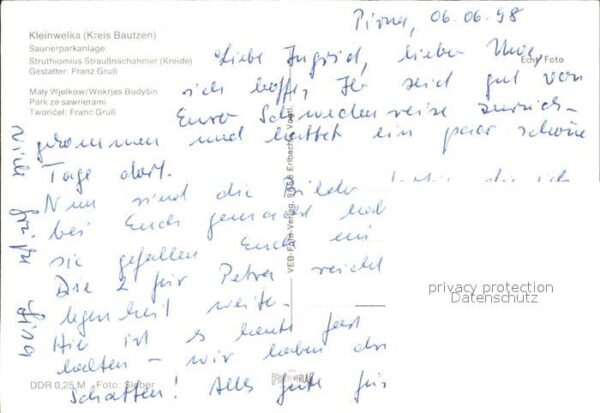 Kleinwelka (Kreis Bautzen)
Saurierparkanlage
Struthiomimus Straußnachahmer (Kreide)
Gestalter: Franz Gruß
Mały Wjelkow/Wokrjes Budyšin
Park ze sawrierami
Tworićel: Franc Gruß
Echt Foto
Pirna, 06.06.98
Liebe Ingrid, lieber Uwe,
ich hoffe, Ihr seid gut von
Eurer Schwedenreise zurück-
gekommen und hattet ein paar schöne
Tage dort.
Nun sind die Bilder die ich
bei Euch gemacht hab
sie gefallen Euch ein
Die 2 für Petra reicht
legenheit weiter.
Hier ist es heute fast
halten – wir haben
Schatten! Alles Gute für
viele Grüße
VEB-Foto-Verlag, 9658 Erlbach Vogtl.
privacy protection
Datenschutz
VERLAG
DDR 0,25 M Foto: Sieber